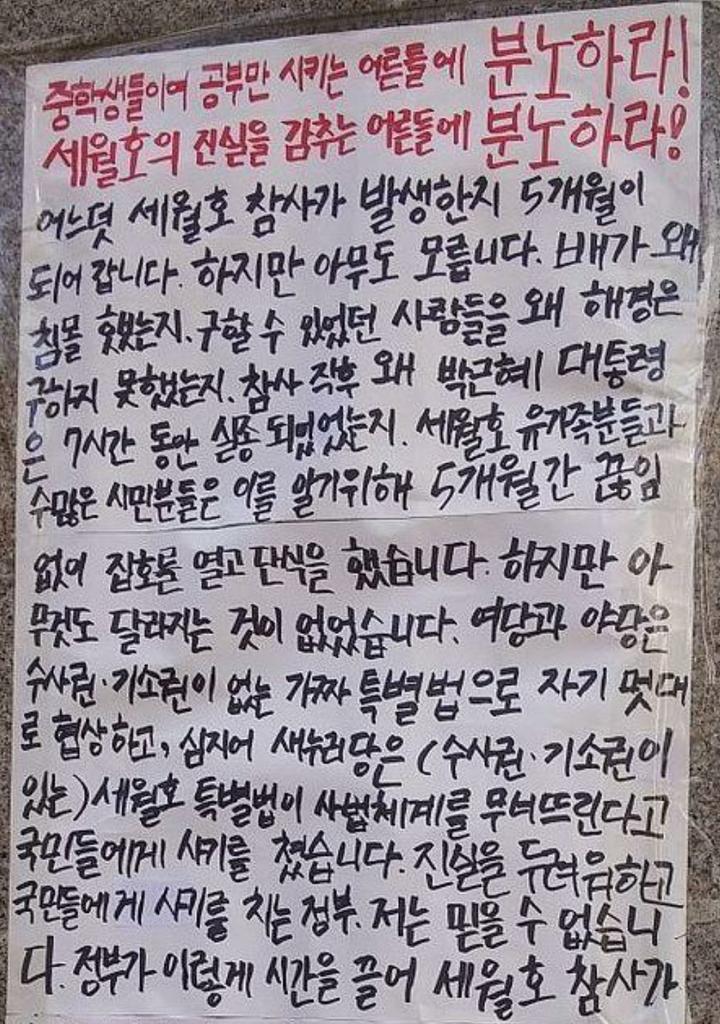 중학생들이여 공부만 시키는 어른들에 분노하라!
세월호의 진실을 감추는 어른들에 분노하라!
어느덧 세월호 참사가 발생한지 5개월이
되어 갑니다. 하지만 아무도 모릅니다. 배가 왜
침몰 했는지. 구할 수 있었던 사람들을 왜 해경은
구하지 못했는지. 참사 직후 왜 박근혜 대통령
은 7시간 동안 실종 되었었는지. 세월호 유가족분들과
수많은 시민분들은 이를 알기위해 5개월간 끊임
없이 집회를 열고 단식을 했습니다. 하지만 아
무것도 달라지는 것이 없었습니다. 여당과 야당은
수사권·기소권이 없는 가짜 특별법으로 자기 멋대
로 협상하고, 심지어 새누리당은 (수사권·기소권이
있는) 세월호 특별법이 사법체계를 무너뜨린다고
국민들에게 사기를 쳤습니다. 진실을 두려워하고
국민들에게 사기를 치는 정부. 저는 믿을 수 없습니
다. 정부가 이렇게 시간을 끌어 세월호 참사가